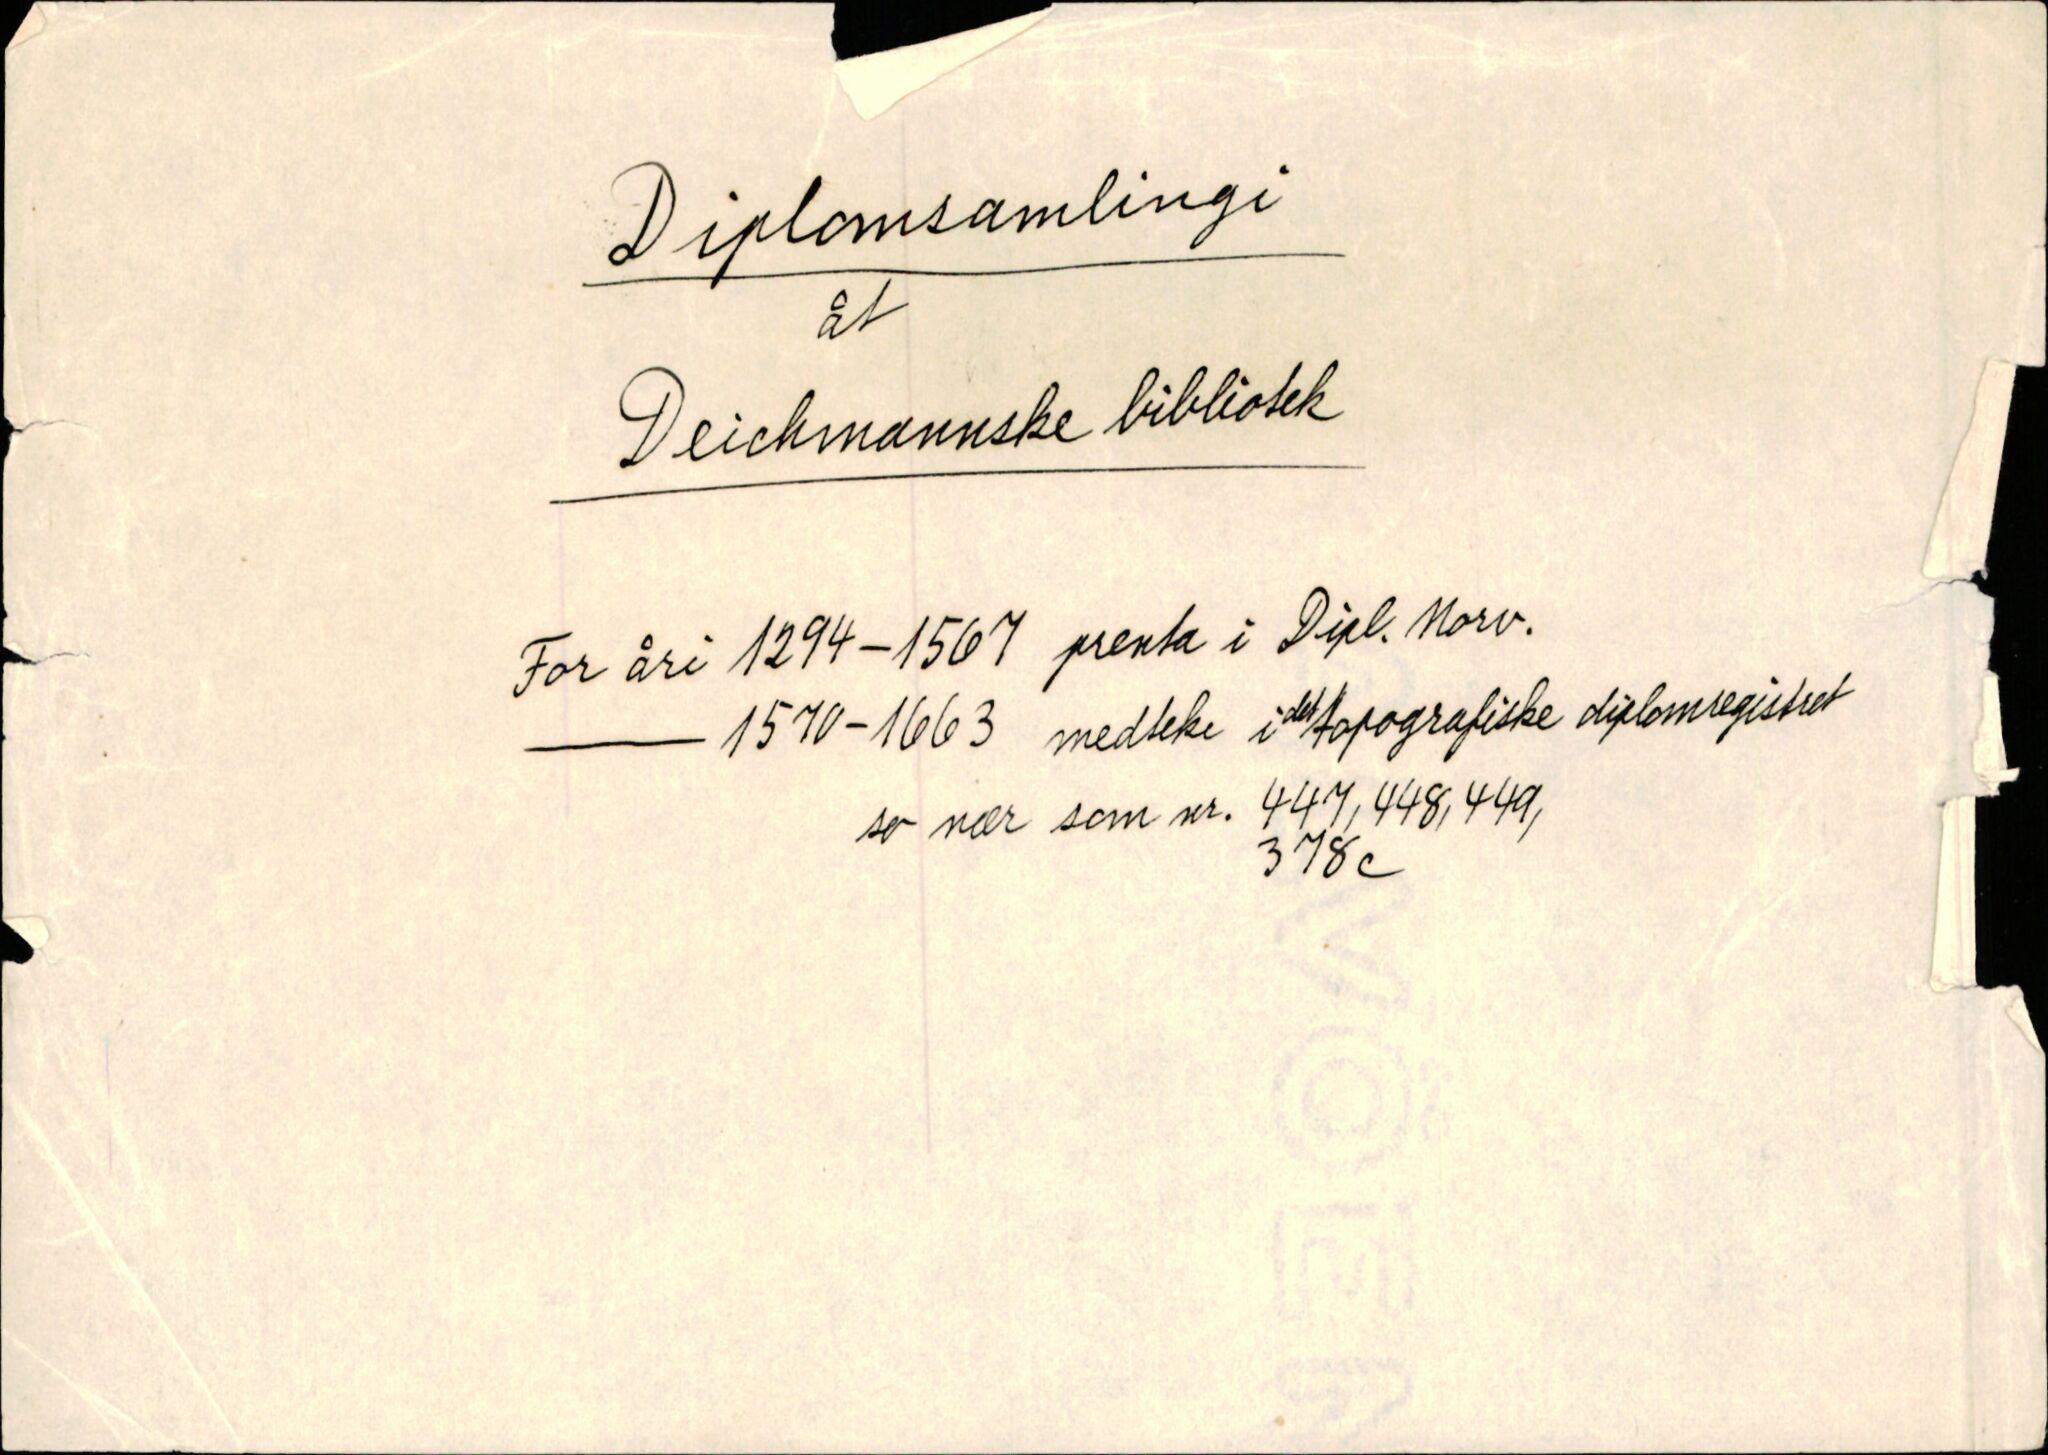 Diplomsamlingi
åt
Deichmannske bibliotek
For åri 1294-1567 prenta i Dipl. Norv.
——— 1570-1663 medteke i det topografiske diplomregistret
so nær som nr. 447, 448, 449,
378c